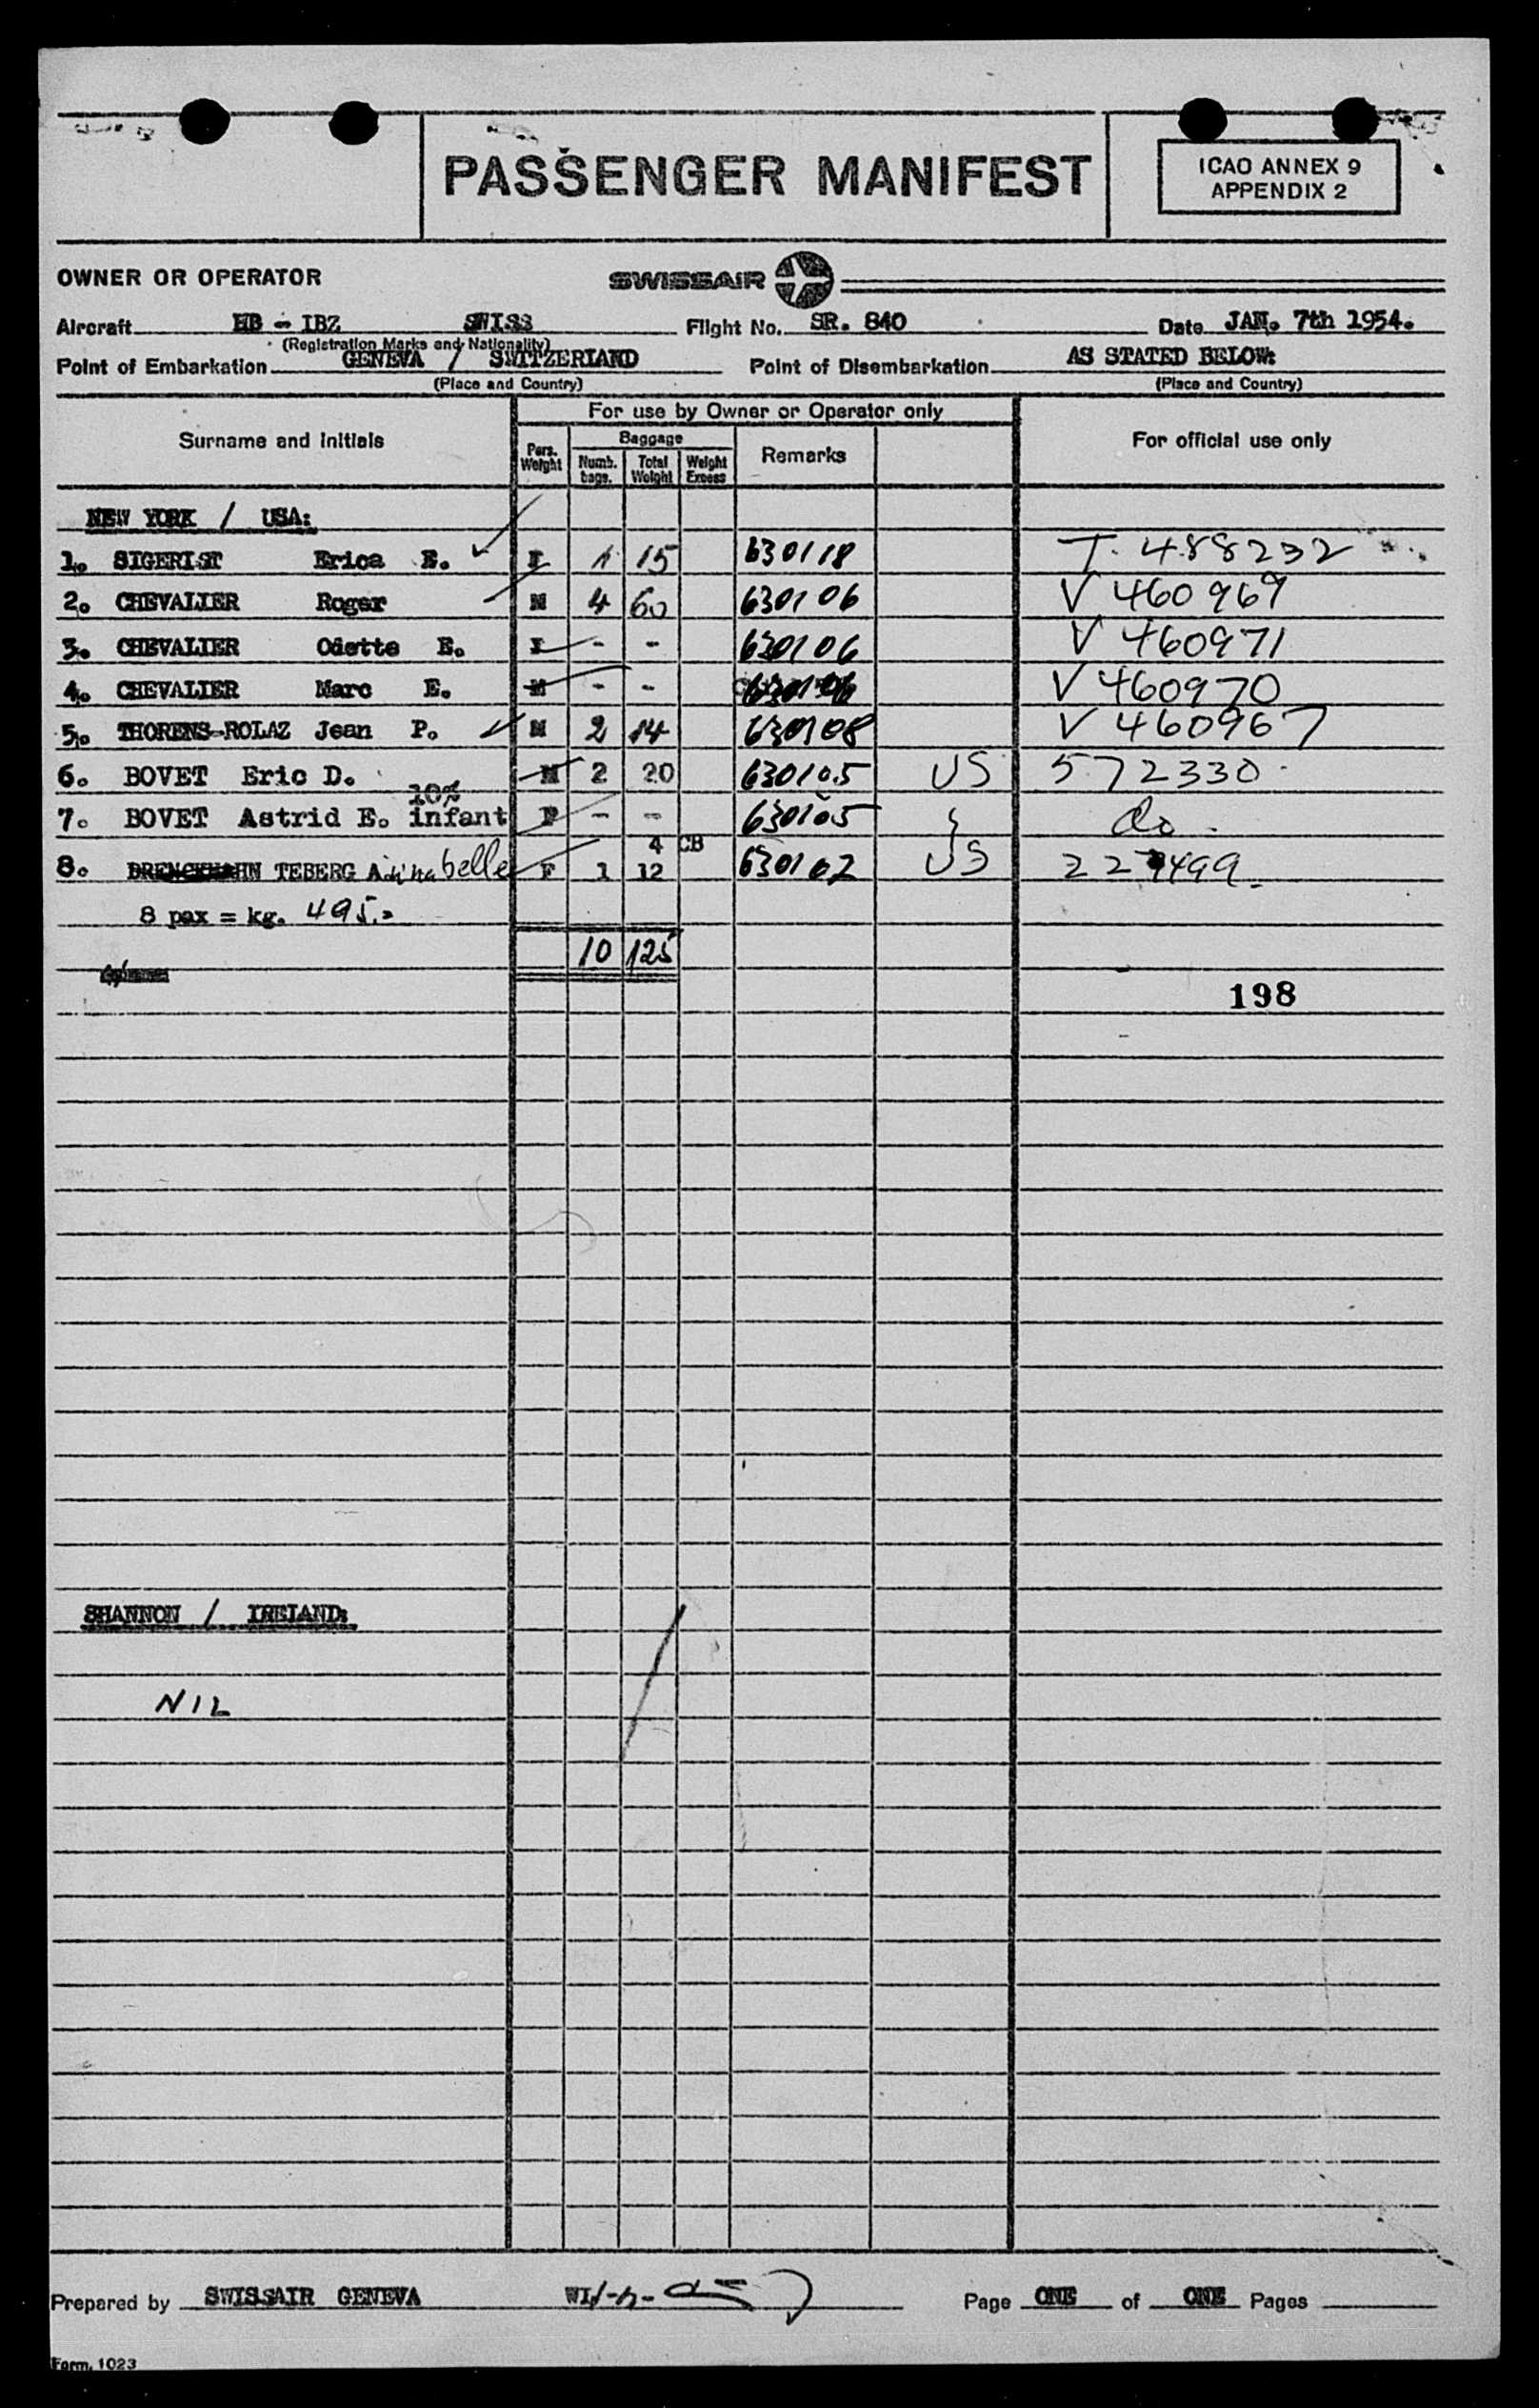 PASSENGER MANIFEST
ICAO ANNEX 9
APPENDIX 2
OWNER OR OPERATOR
SWISSAIR
Aircraft HB - IBZ SWISS Flight No. SR. 840 Date JAN. 7th 1954.
(Registration Marks and Nationality)
Point of Embarkation GENEVA / SWITZERLAND Point of Disembarkation AS STATED BELOW:
(Place and Country) (Place and Country)
For use by Owner or Operator only
Surname and Initials Pers. Weight Baggage Numb. bags. Total Weight Weight Excess Remarks For official use only
NEW YORK / USA:
1. SIGERIST Erica E. F 1 15 630118 T. 488232
2. CHEVALIER Roger M 4 60 630106 V 460969
3. CHEVALIER Odette E. F - - 630106 V 460971
4. CHEVALIER Marc E. M - - 630106 V 460970
5. THORENS-ROLAZ Jean P. M 2 14 630108 V 460967
6. BOVET Eric D. M 2 20 630105 US 572330
10%
7. BOVET Astrid E. infant F - - 630105 do.
4 CB
8. TEBERG Annabelle F 1 12 630102 US
8 pax = kg. 495.-
10 125
198
SHANNON / IRELAND:
NIL
Prepared by SWISSAIR GENEVA Page ONE of ONE Pages
Form. 1023